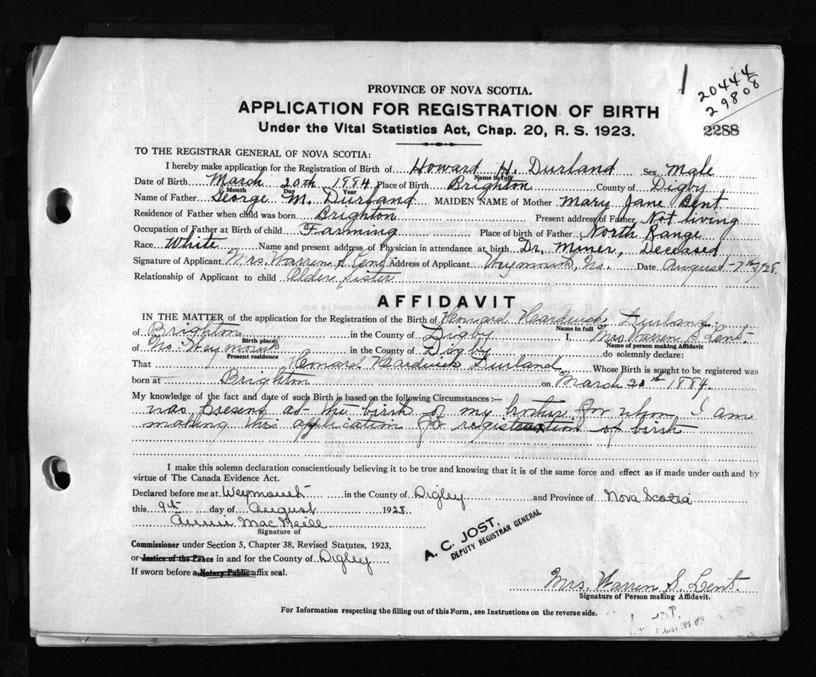 PROVINCE OF NOVA SCOTIA.
20444
29808
APPLICATION FOR REGISTRATION OF BIRTH
Under the Vital Statistics Act, Chap. 20, R. S. 1923.
2288
TO THE REGISTRAR GENERAL OF NOVA SCOTIA:
I hereby make application for the Registration of Birth of Howard H. Durland Sex Male
Name in full
Date of Birth March 20th 1884 Place of Birth Brighton County of Digby
Month Day Year
Name of Father George M. Durland MAIDEN NAME of Mother Mary Jane Bent
Residence of Father when child was born Brighton Present address of Father Not living
Occupation of Father at Birth of child Farming Place of birth of Father North Range
Race White Name and present address of Physician in attendance at birth Dr. Miner, Deceased
Signature of Applicant Mrs. Warren S. Lent Address of Applicant Weymouth, N.S. Date August 7th/28.
Relationship of Applicant to child Older sister
AFFIDAVIT
IN THE MATTER of the application for the Registration of the Birth of Howard Hardwick Durland
Name in full
of Brighton in the County of Digby I, Mrs. Warren S. Lent.
Birth place Name of person making Affidavit
of Weymouth in the County of Digby do solemnly declare:
Present residence
That Howard Hardwick Durland Whose Birth is sought to be registered was
born at Brighton on March 20th 1884.
My knowledge of the fact and date of such Birth is based on the following Circumstances:—
was present at the birth of my brother for whom I am
making this application for registration of birth
I make this solemn declaration conscientiously believing it to be true and knowing that it is of the same force and effect as if made under oath and by
virtue of The Canada Evidence Act.
Declared before me at Weymouth in the County of Digby and Province of Nova Scotia
this 9th day of August 1928.
Annie MacNeill
Signature of
A. C. JOST,
DEPUTY REGISTRAR GENERAL
Commissioner under Section 5, Chapter 38, Revised Statutes, 1923,
or Justice of the Peace in and for the County of Digby
If sworn before a Notary Public affix seal.
Mrs. Warren S. Lent.
Signature of Person making Affidavit.
For Information respecting the filling out of this Form, see Instructions on the reverse side.